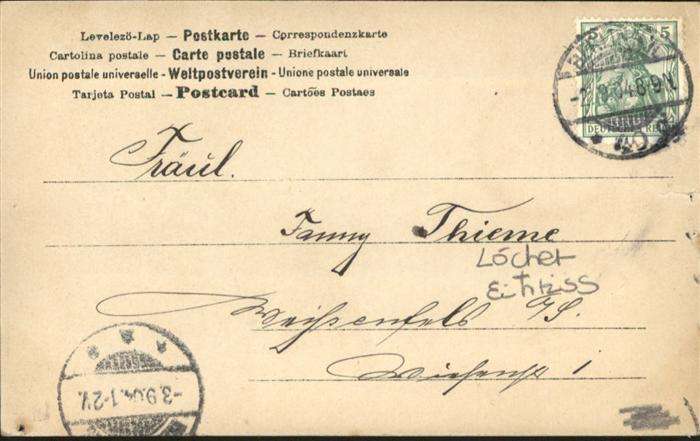 Levelező-Lap — Postkarte — Correspondenzkarte
Cartolina postale — Carte postale — Briefkaart
Union postale universelle - Weltpostverein - Unione postale universale
Tarjeta Postal — Postcard — Cartões Postaes
5
DEUTSCHES REICH
-2.9.04.8-9V.
Fräul.
Fanny Thieme
Löcher
Einriss
Weißenfels a/S.
-3.9.04.1-2V.